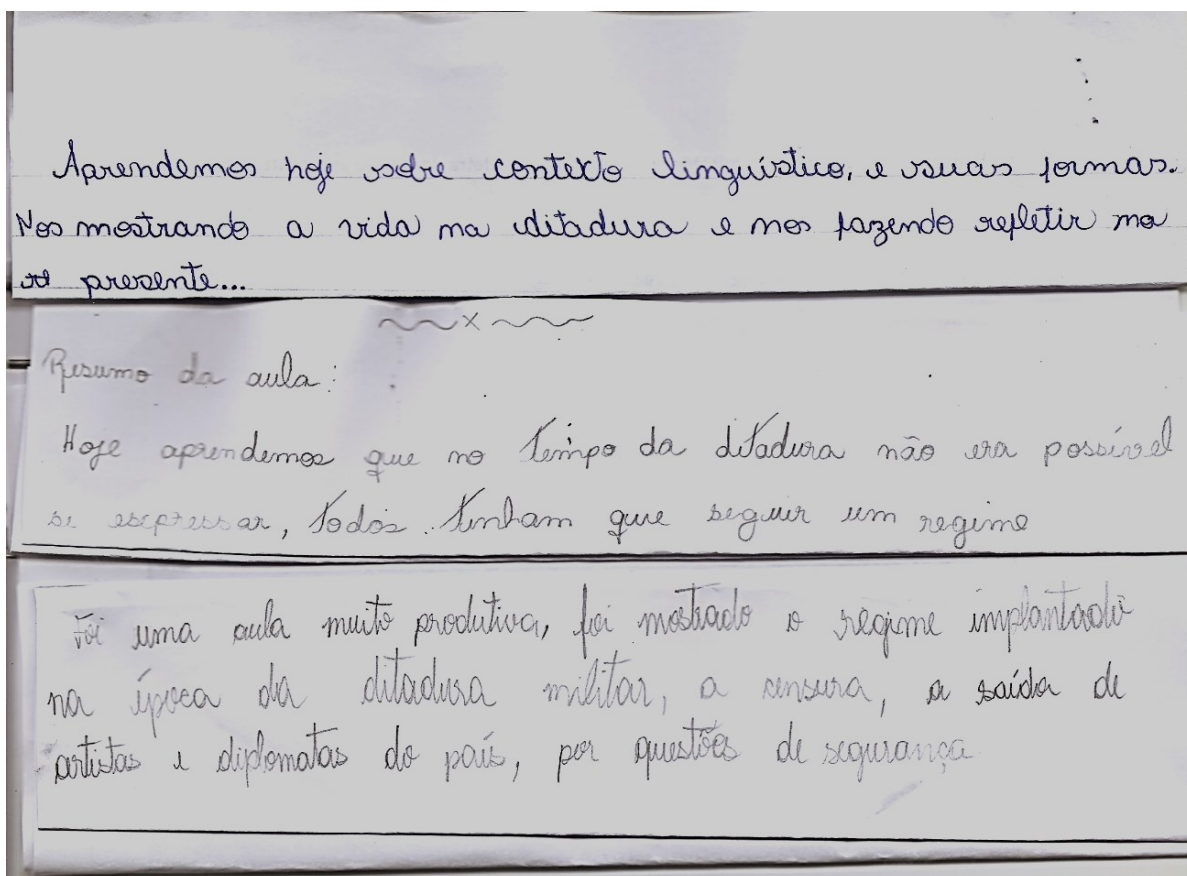 Aprendemos hoje sobre contexto linguístico, e suas formas.
Nos mostrando a vida na ditadura e nos fazendo refletir no
presente...
x
Resumo da aula:
Hoje aprendemos que no tempo da ditadura não era possível
se expressar, todos tinham que seguir um regime
Foi uma aula muito produtiva, foi mostrado o regime implantado
na época da ditadura militar, a censura, a saída de
artistas e diplomatas do país, por questões de segurança